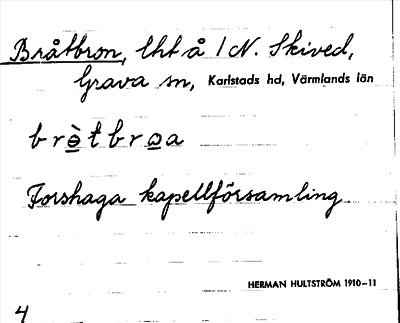 Bråtbron, lht å 1 N. Skived,
Grava sn, Karlstads hd, Värmlands län
brètbroa
Forshaga kapellförsamling
HERMAN HULTSTRÖM 1910–11
4